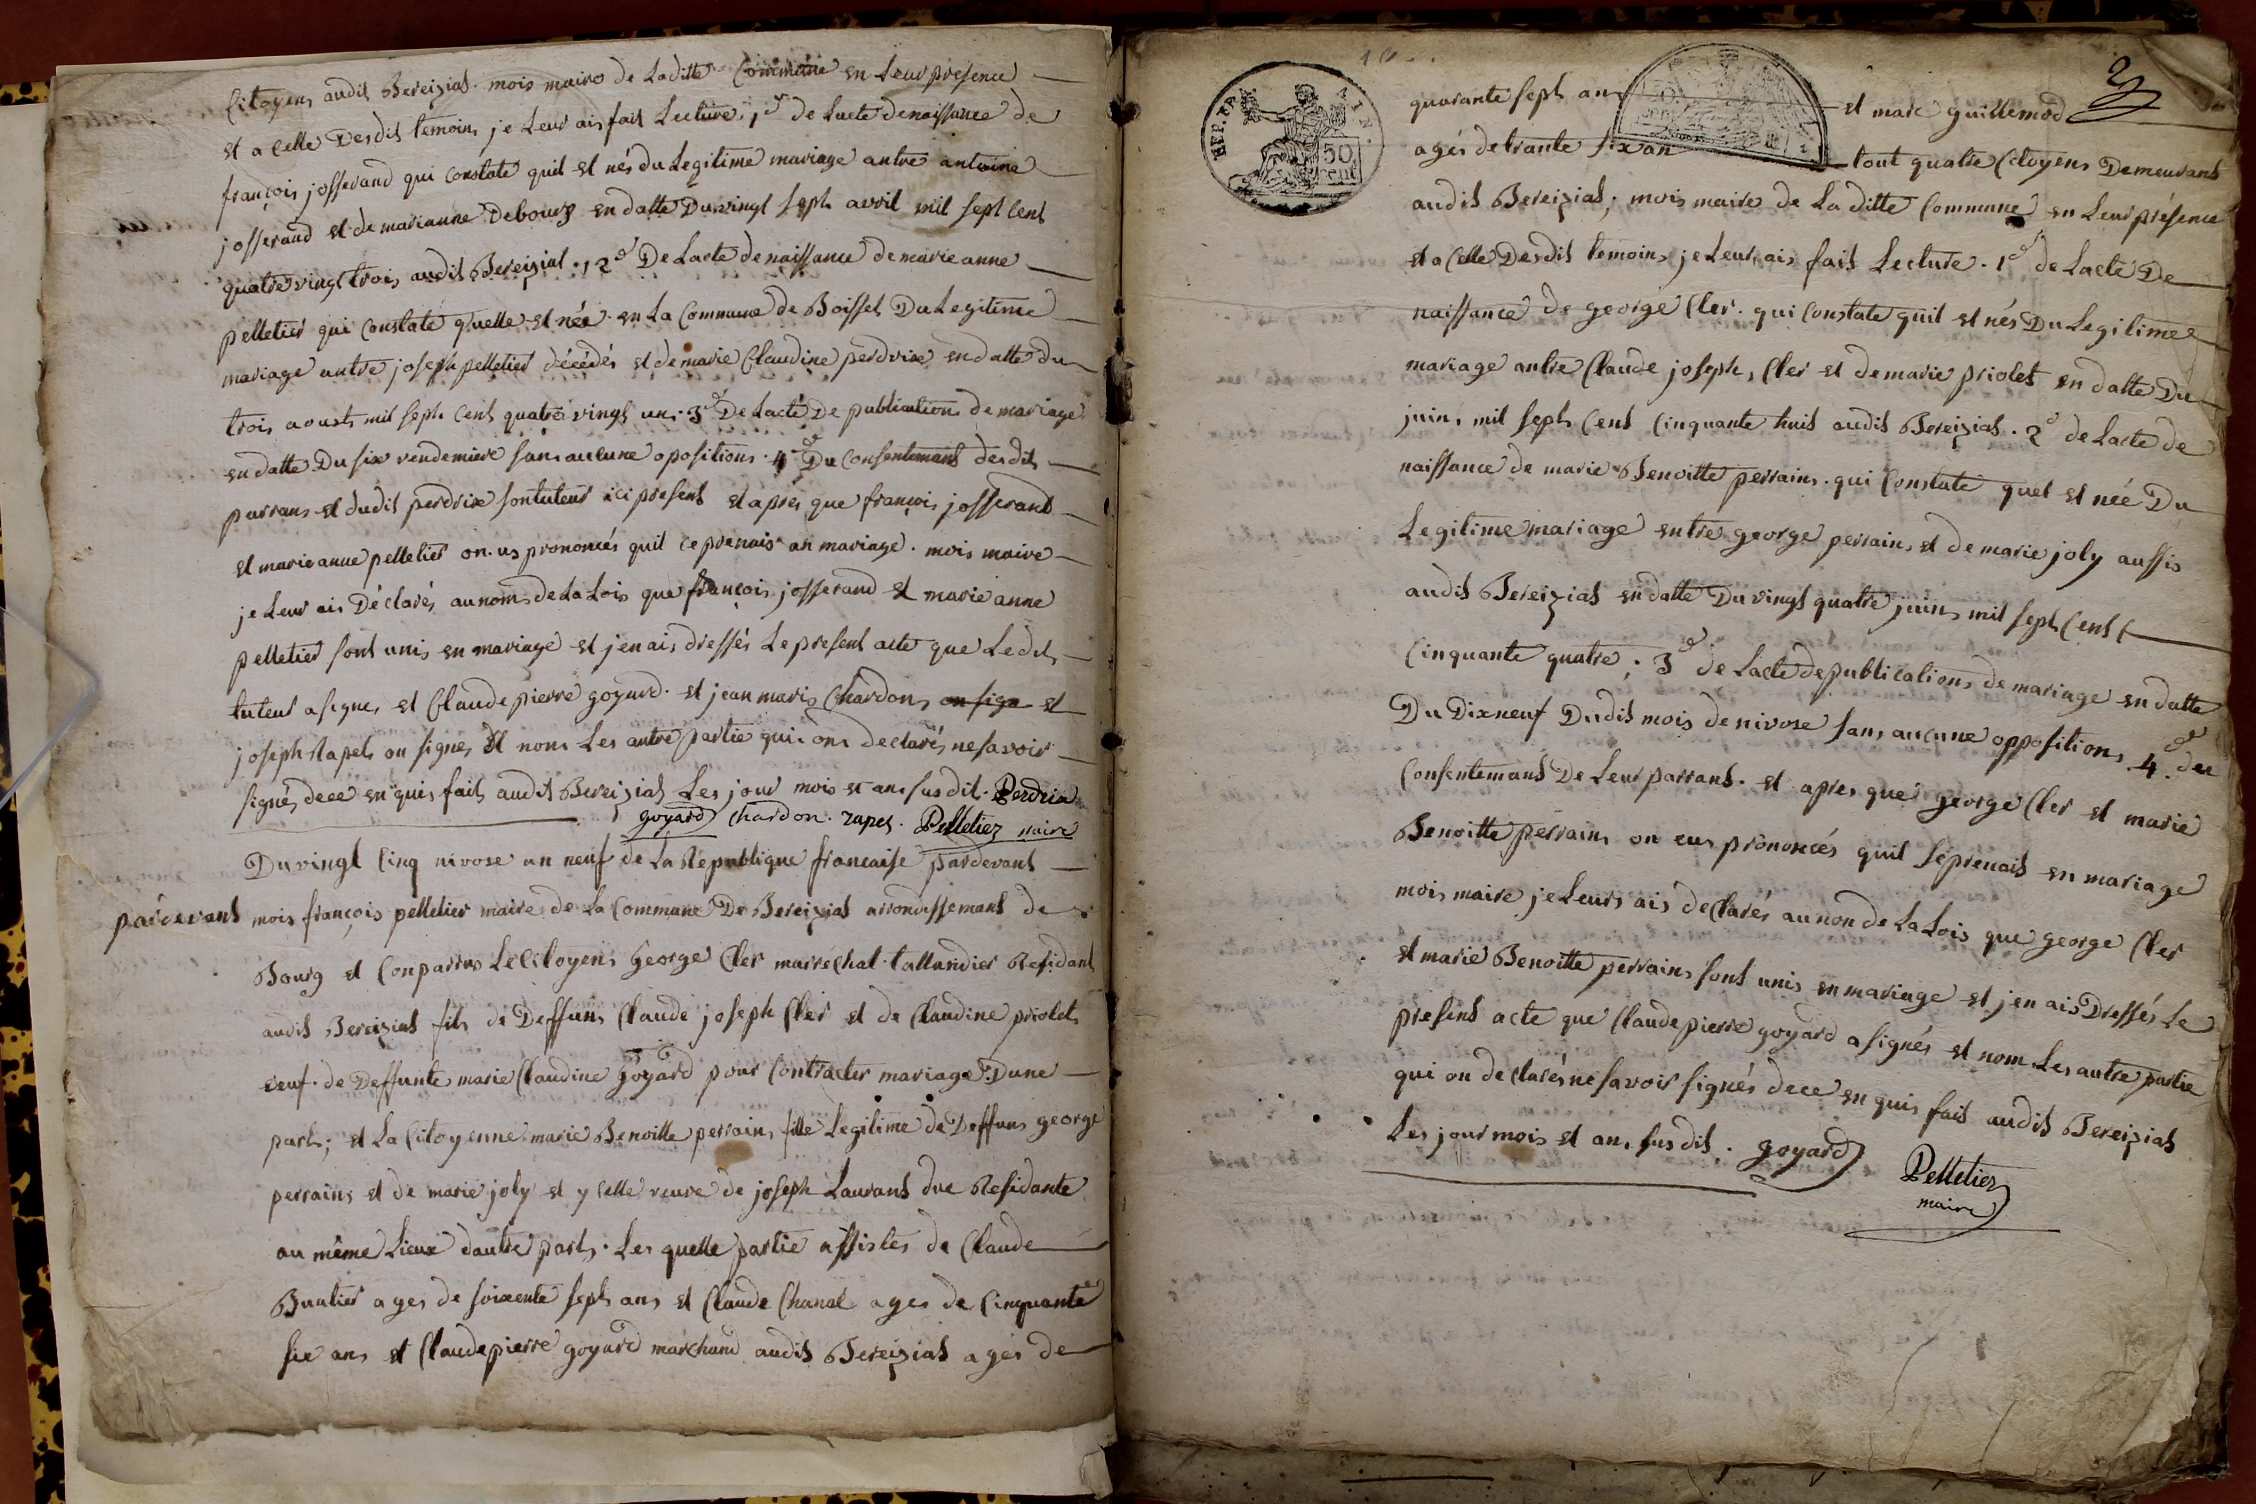 Citoyens audit Bereiziat. mois maire de Laditte Commune en Leur presence
et a Celle Desdit temoins je Leur ais fait Lecture, 1° de Lacte denaissance de
françois josserand qui Constate quil et nés du Legitime mariage antre antoine
josserand et de marianne Debourg en datte Du vingt sept avril mil sept Cent
quatre vingt trois audit Bereiziat. 2° De Lacte de naissance de marie anne
pelletier qui Constate quelle et née en La Commune de Boisset Du Legitime
mariage antre joseph pelletier décédés et de marie Claudine perdrixe en datte du
trois aoust mil sept Cent quatre vingt un. 3° De Lacte De publication de mariage
en datte Du six vendemiere sans aucune opositions. 4° Du Consentemant desdits
parrans et dudit perdrixe son tuteur ici present et apres que françois josserand
et marie anne pelletier on us prononcés quil ce prenais an mariage. mois maire
je Leur ais Déclarés au nom de La Lois que françois josserand et marie anne
pelletier sont unis en mariage et jen ais dressés Le present acte que Ledit
tuteur a signe, et Claude pierre goyard. et jean maris Chardon, on signe et
joseph Rapet on signes Et nom Les autre partie qui ons declarés ne savoir
signés, dece en quis fait audit Bereiziat Les jour mois et ans susdit. Perdria
goyard Chardon. rapet. Pelletier maire
Du vingt Cinq nivose an neuf de La Republique francaise pardevant
pardevant mois françois pelletier maire de La Commune De Bereiziat arrondissemant de
Bourg et Conparrus Le Citoyen George Cler marrechal tallandier Residant
audit Bereiziat fils de Deffuns Claude joseph Cler et de Claudine priolet
veuf de Deffunte marie Claudine Goyard pour Contracter mariage Dune
part; et La Citoyenne marie Benoitte perrain, fille Legitime de Deffuns george
perrains et de marie joly et ycelle veuve de joseph Laurans due Residante
au même Lieux dautre part. Les quelle partie assistes de Claude
Buatier ages de soixente sept ans et Claude Chanal ages de Cinquante
sie ans et Claude pierre goyard marchand audit Bereiziat ages de
2
REP. FRA.
50 cent
quarante sept ans et marc guillemod
agés de trante six an tout quatre Citoyens Demeurant
audit Bereiziat; mois maire de La ditte Commune en Leur présence
et a Celle Desdit temoins je Leur ais fait Lecture. 1° de Lacte De
naissance de george Cler. qui Constate quil et nés Du Legitime
mariage antre Claude joseph, Cler et de marie priolet en datte Du
juin, mil sept Cent Cinquante huit audit Bereiziat. 2° de Lacte de
naissance de marie Benoitte perrains. qui Constate quel et née Du
Legitime mariage entre george perrain, et de marie joly aussis
audit Bereiziat en datte Du vingt quatre juin, mil sept Cent
Cinquante quatre; 3° de Lacte de publications de mariage en datte
Du Dix neuf Dudit mois de nivose sans aucune oppositions 4° du
Consentemant De Leur parrans. et apres que george Cler et marie
Benoitte perrains on eus prononcés quil se prenais en mariage
mois maire je Leurs ais declarés au non de La Lois que george Cler
et marie Benoitte perrains sont unis en mariage et jen ais Dressés Le
present acte que Claude pierre goyard a signés et nom Les autre partie
qui on declarés ne savoir signés dece en quis fait audit Bereiziat
Les jour mois et an, susdit. goyard
Pelletier
maire